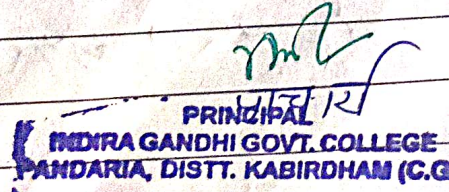 PRINCIPAL
INDIRA GANDHI GOVT. COLLEGE
PANDARIA, DISTT. KABIRDHAM (C.G